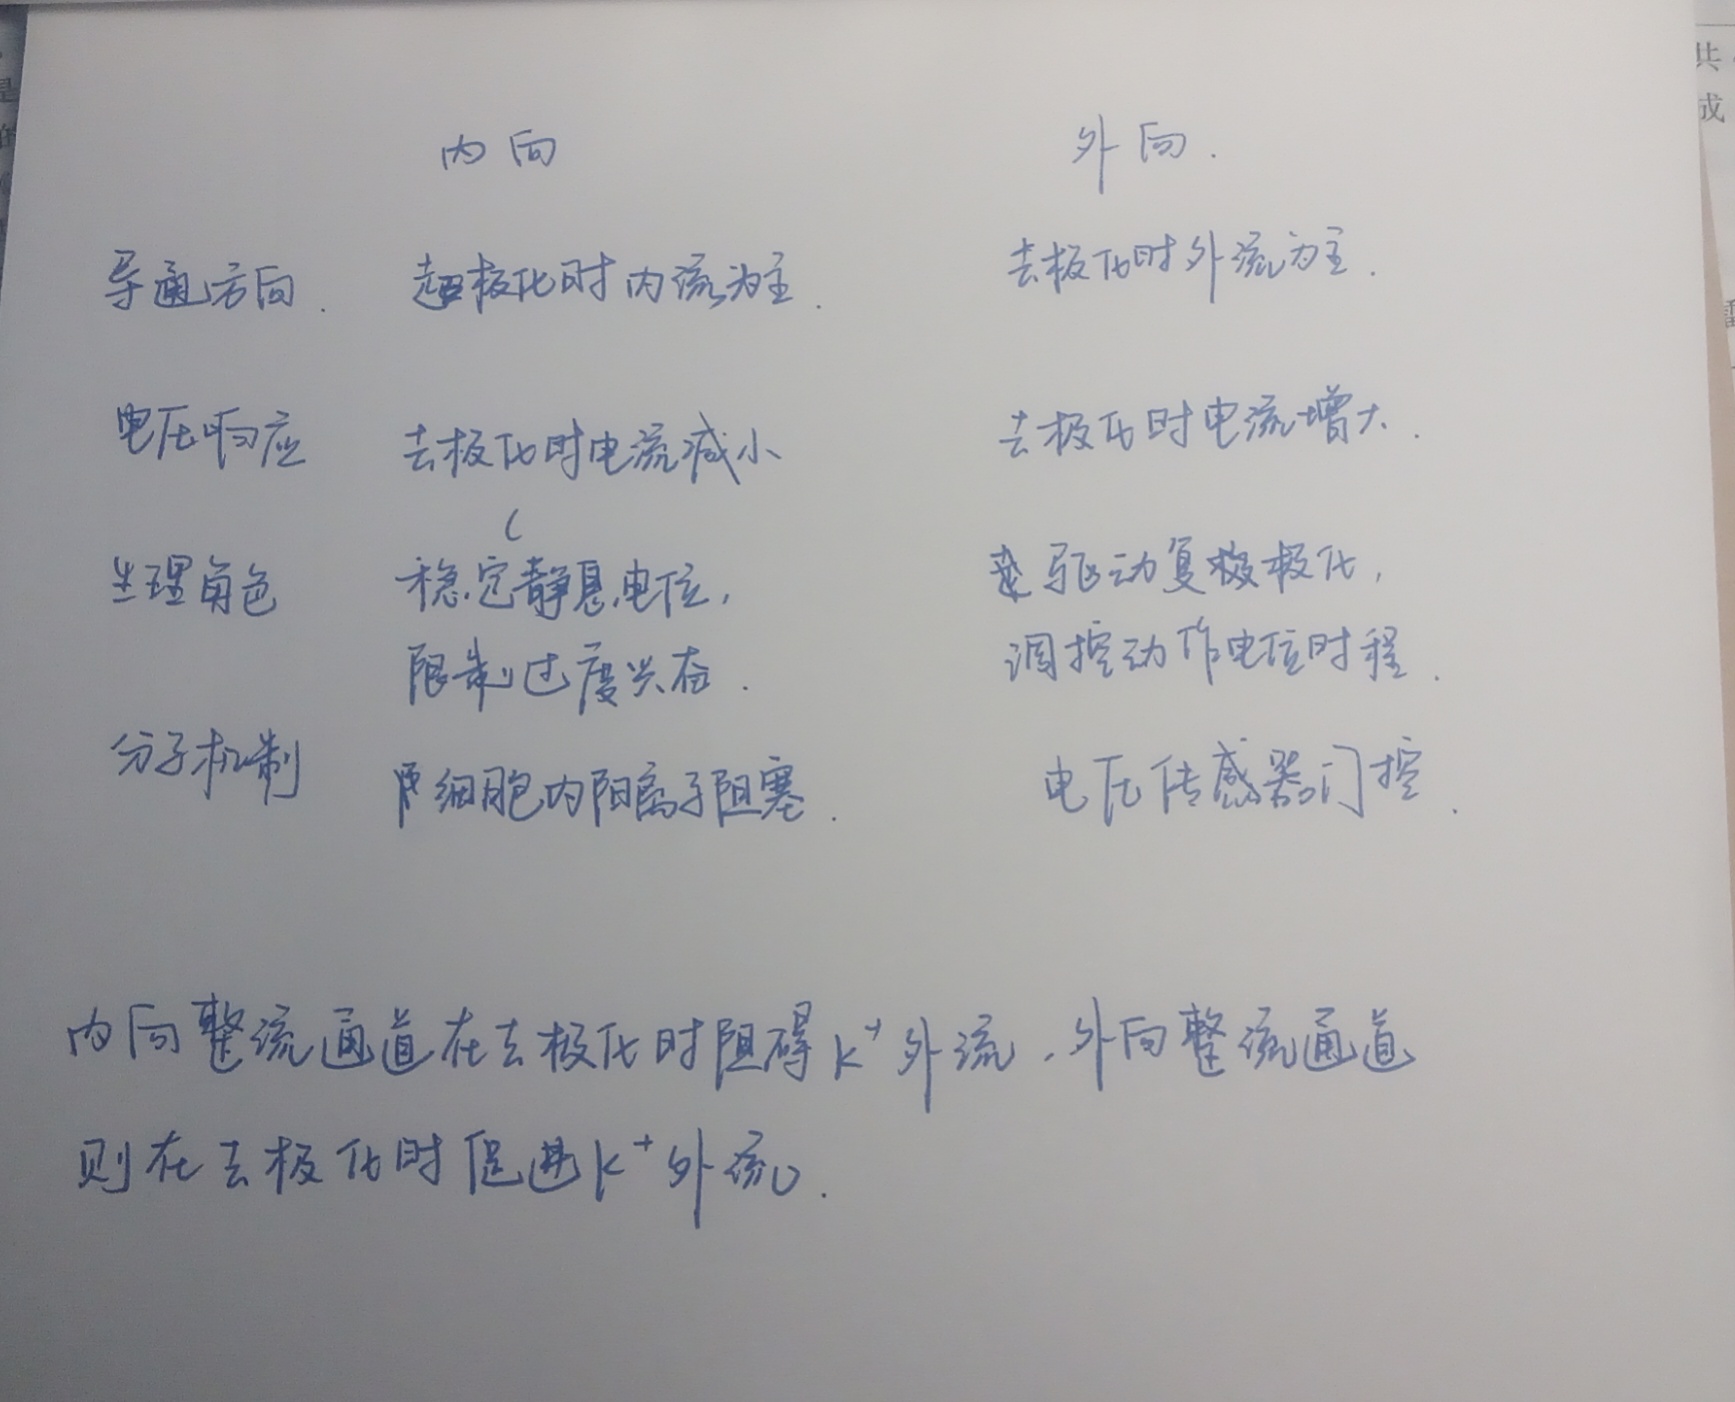 内向 外向.
导通方向. 超极化时内流为主. 去极化时外流为主.
电压响应 去极化时电流减小 去极化时电流增大.
生理角色 稳定静息电位, 驱动复极极化,
限制过度兴奋. 调控动作电位时程.
分子机制 细胞内阳离子阻塞. 电压传感器门控.
内向整流通道在去极化时阻碍K⁺外流. 外向整流通道
则在去极化时促进K⁺外流.
共
成
是